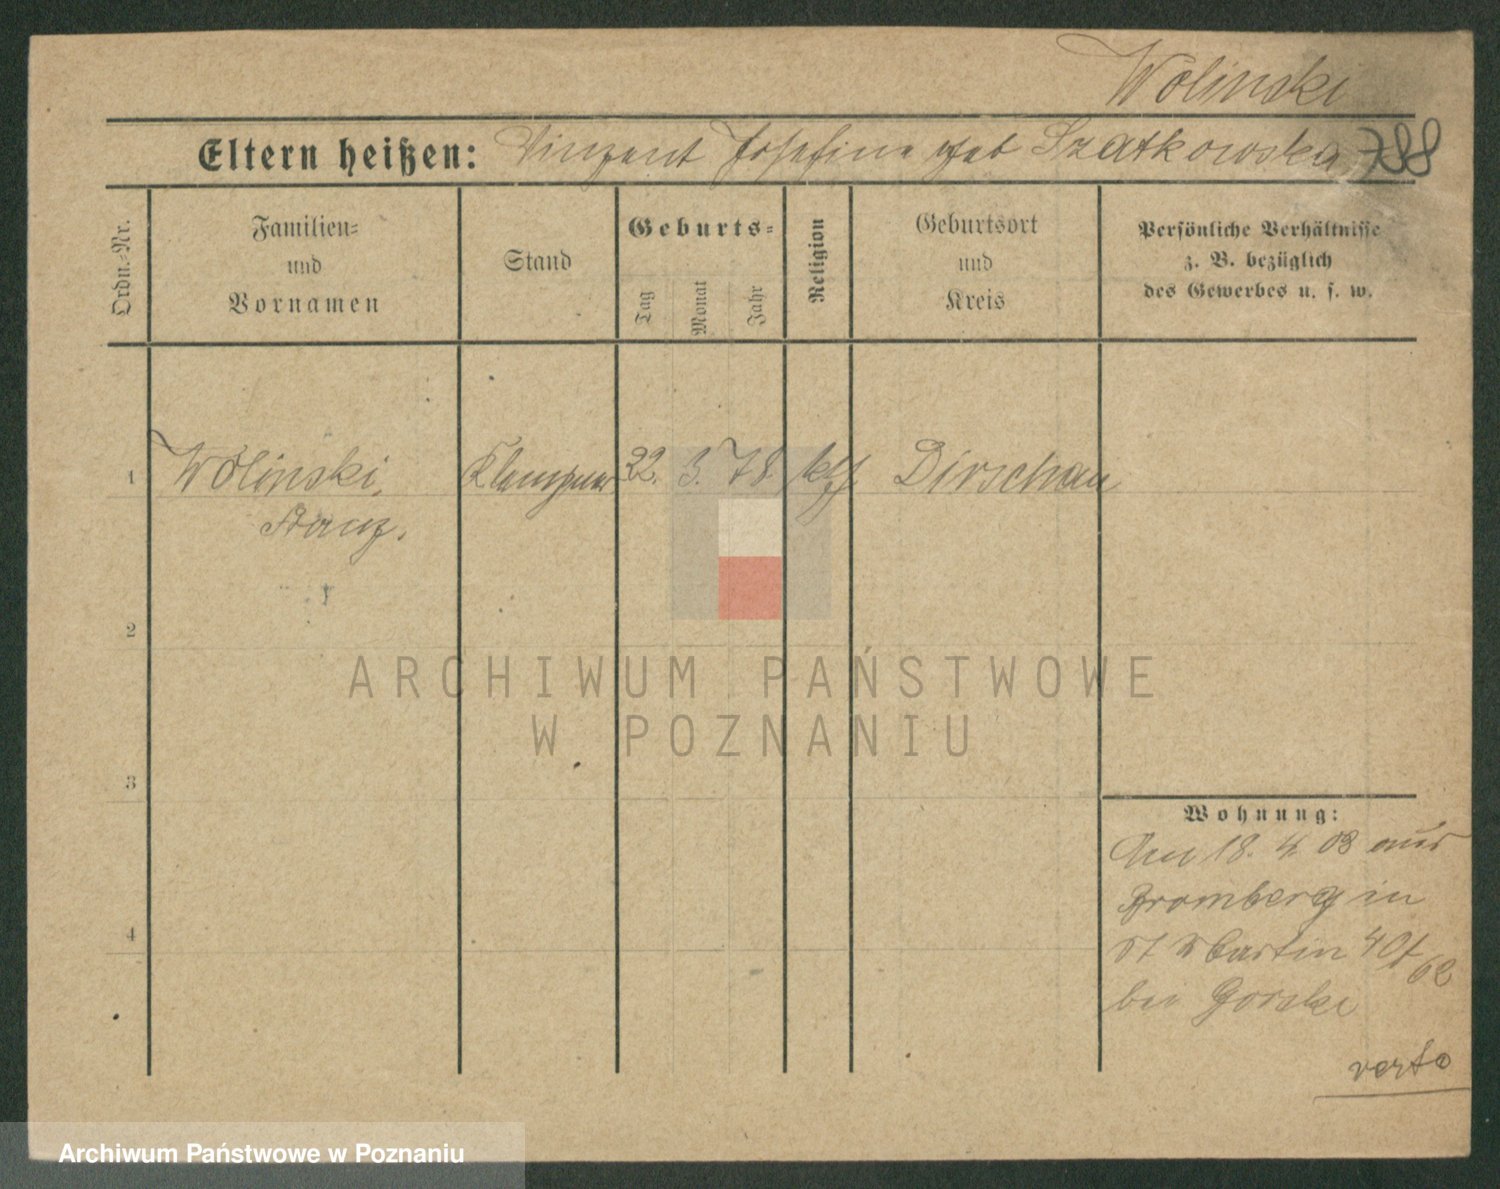 Wolinski
Eltern heißen: Vinzent Josefine geb Szatkowska 788
Ordn.-Nr.
Familien-
und
Vornamen
Stand
Geburts-
Tag
Monat
Jahr
Religion
Geburtsort
und
Kreis
Persönliche Verhältnisse
z. B. bezüglich
des Gewerbes u. s. w.
1 Wolinski, Klempner 22. 3. 78 kth Dirschau
Franz.
2
3
4
Wohnung:
Am 18. 4. 03 aus
Bromberg in
St Martin 40/
62
bei Gorski
verto
ARCHIWUM PAŃSTWOWE
W POZNANIU
Archiwum Państwowe w Poznaniu